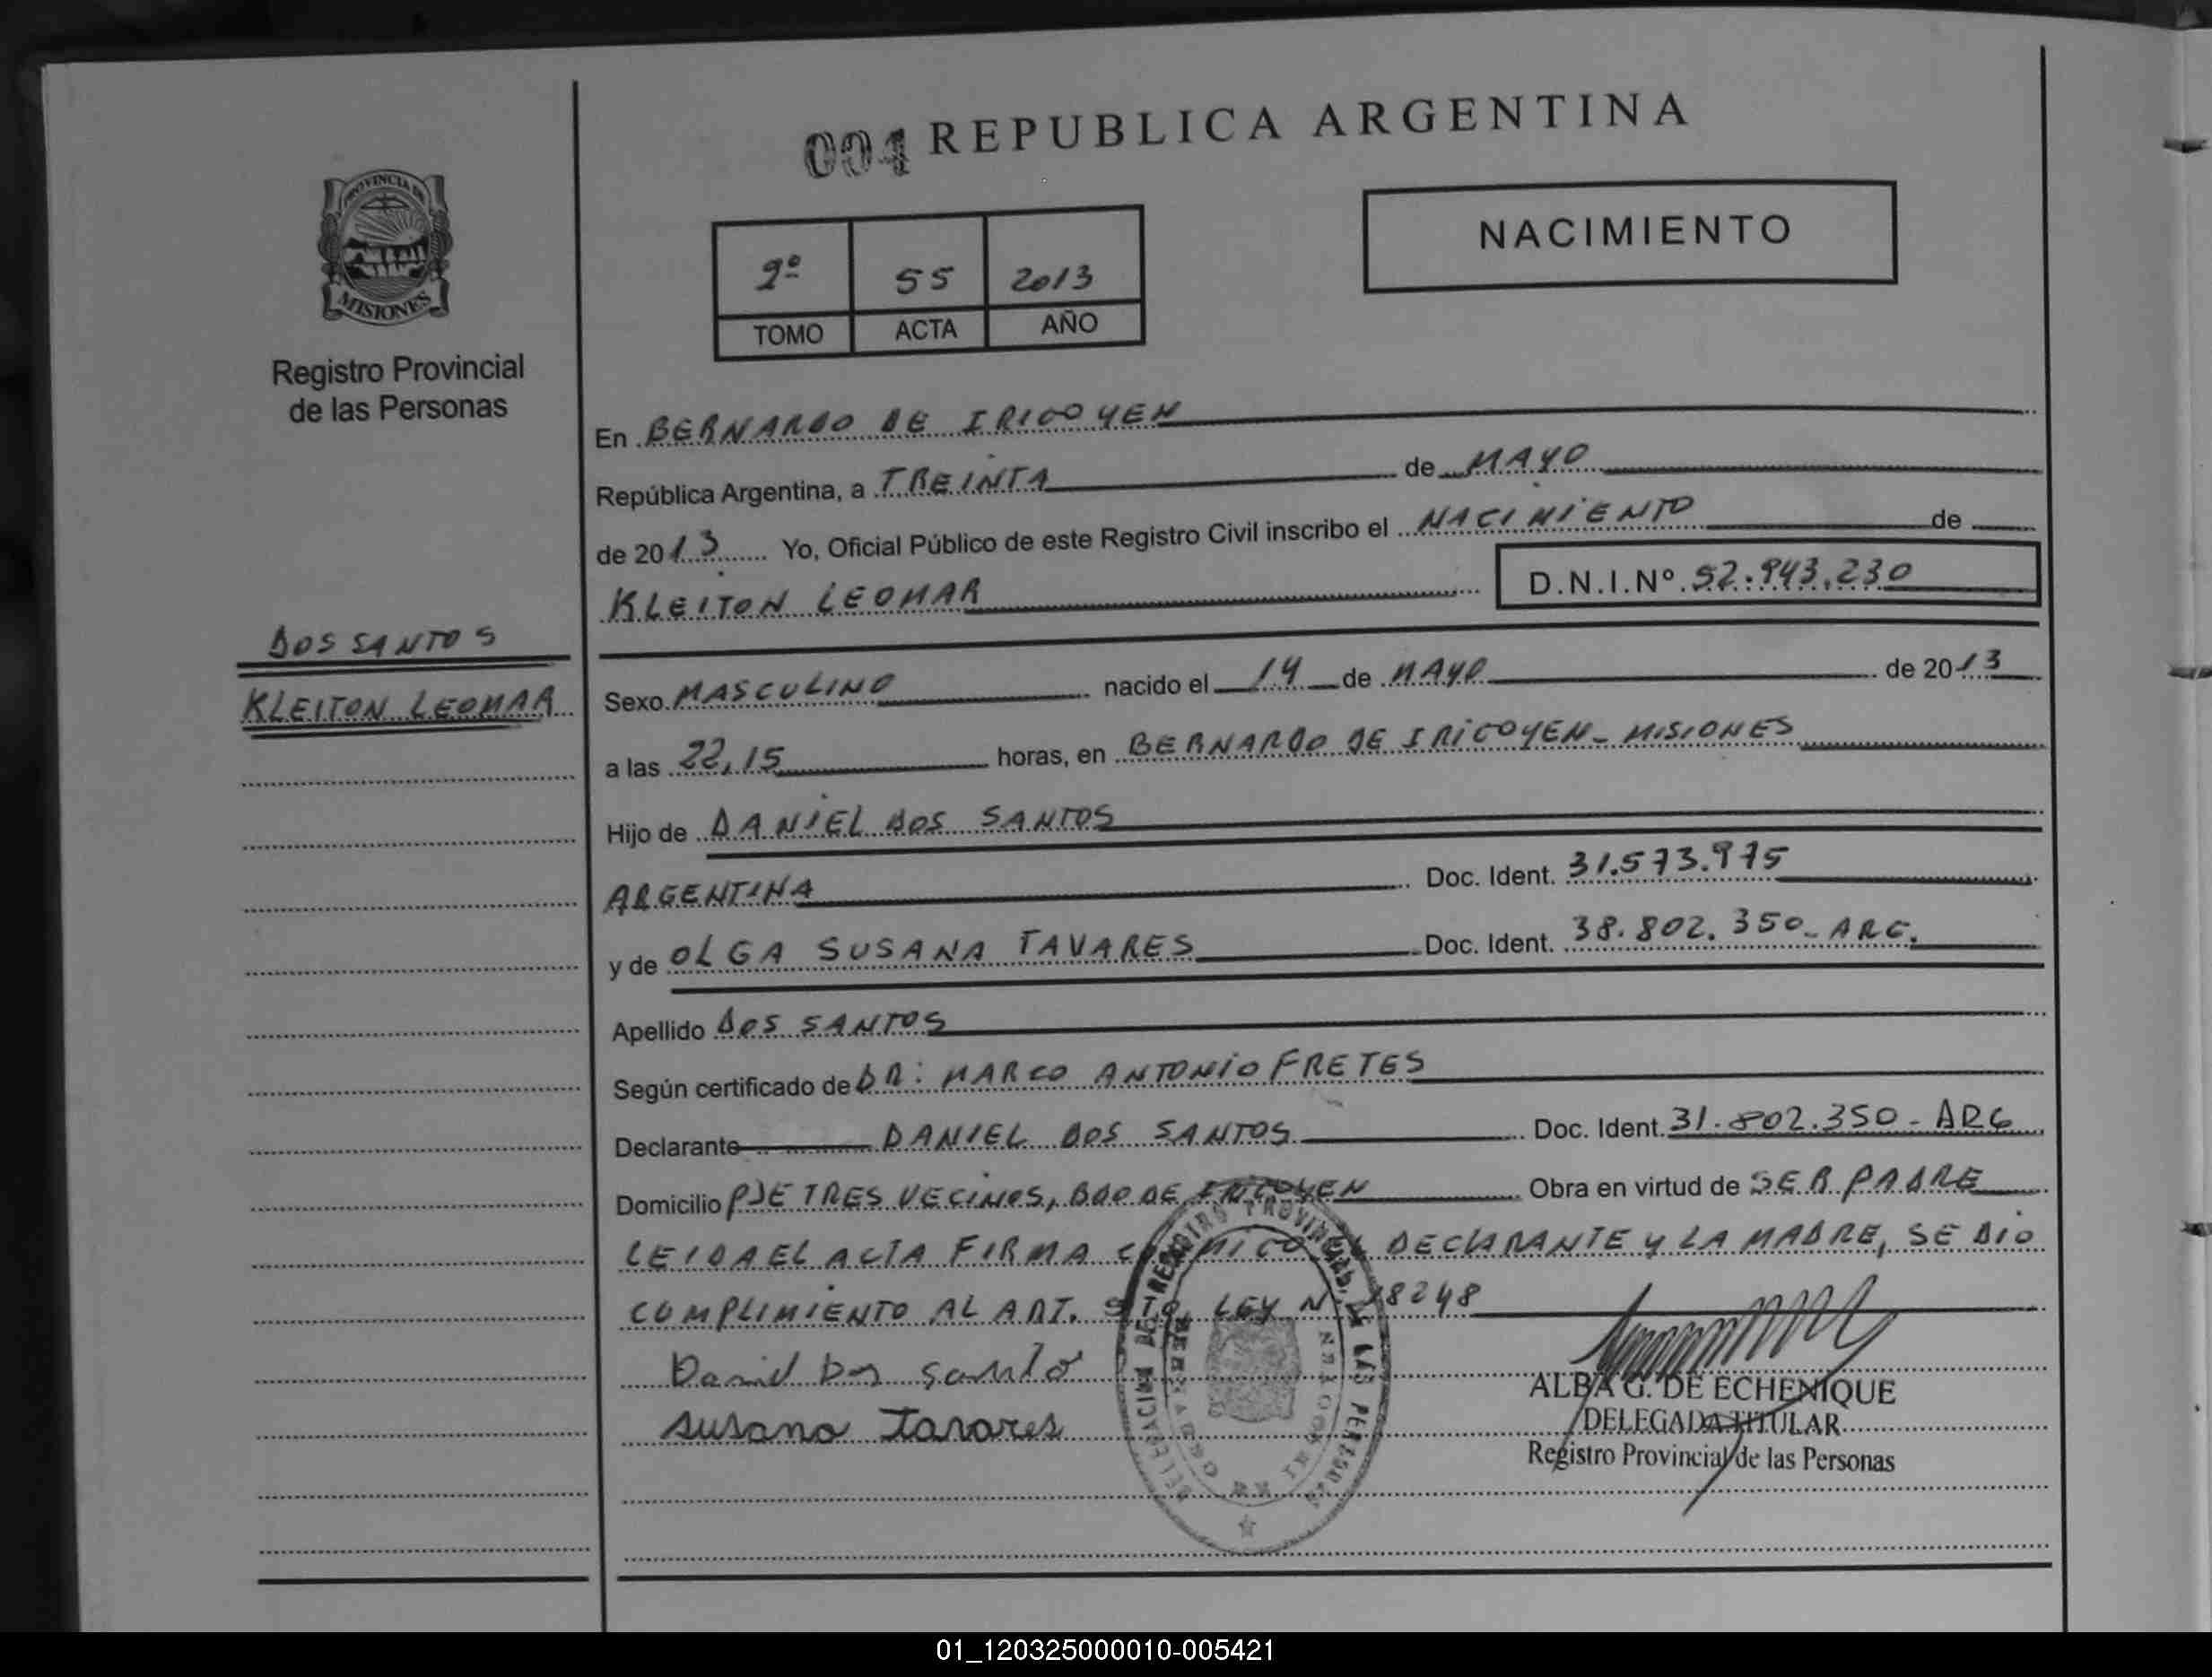 004 REPUBLICA ARGENTINA
PROVINCIA DE
MISIONES
Registro Provincial
de las Personas
NACIMIENTO
2º 55 2013
TOMO ACTA AÑO
En BERNARDO DE IRIGOYEN
República Argentina, a TREINTA de MAYO
de 2013 Yo, Oficial Público de este Registro Civil inscribo el NACIMIENTO de
KLEITON LEOMAR D.N.I.Nº 52.943.230
DOS SANTOS
KLEITON LEOMAR
Sexo MASCULINO nacido el 14 de MAYO de 2013
a las 22,15 horas, en BERNARDO DE IRIGOYEN - MISIONES
Hijo de DANIEL DOS SANTOS
ARGENTINA Doc. Ident. 31.573.975
y de OLGA SUSANA TAVARES Doc. Ident. 38.802.350 - ARG.
Apellido DOS SANTOS
Según certificado de DR: MARCO ANTONIO FRETES
Declarante DANIEL DOS SANTOS Doc. Ident. 31.802.350 - ARG
Domicilio PJE TRES VECINOS, BDO DE IRIGOYEN Obra en virtud de SER PADRE
LEIDA EL ACTA FIRMA CONMIGO EL DECLARANTE Y LA MADRE, SE DIO
CUMPLIMIENTO AL ART. 5TO LEY Nº 18248
Daniel Dos Santo
Susana Tavares
ALBA G. DE ECHENIQUE
DELEGADA TITULAR
Registro Provincial de las Personas
REGISTRO PROVINCIAL DE LAS PERSONAS
BERNARDO DE IRIGOYEN
01_120325000010-005421